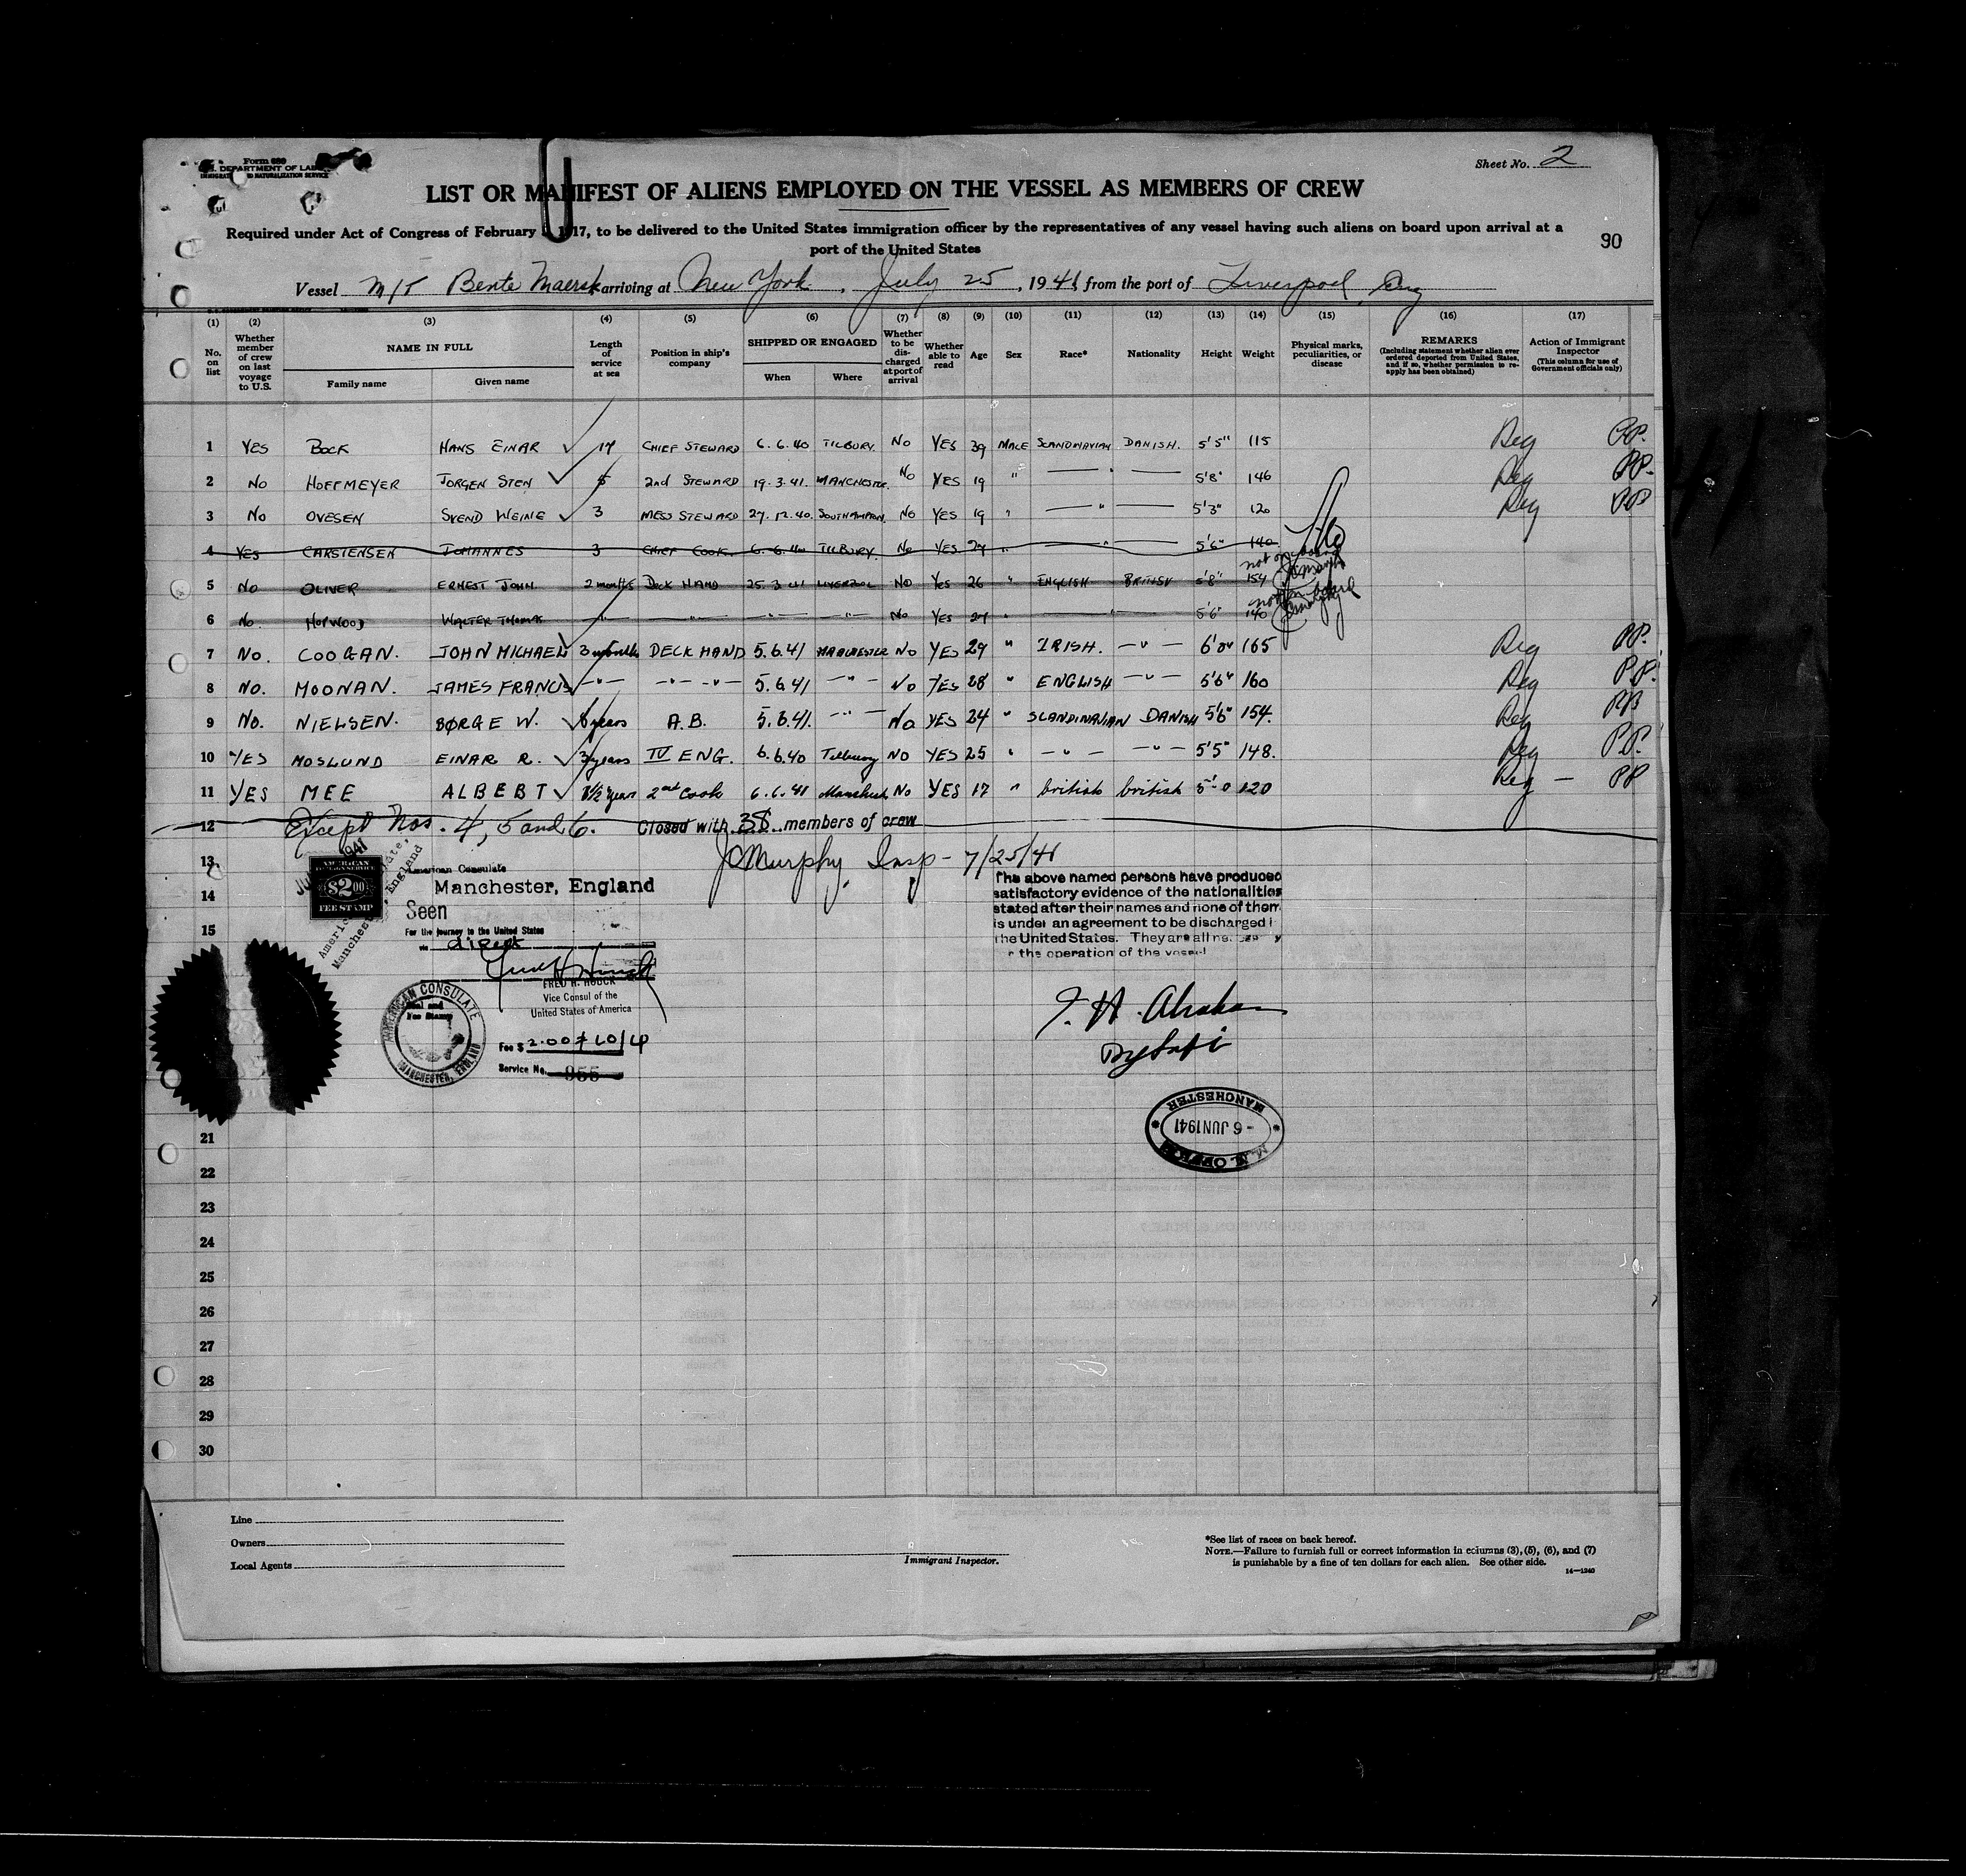 Form 680
U.S. DEPARTMENT OF LABOR
IMMIGRATION AND NATURALIZATION SERVICE
Sheet No. 2
LIST OR MANIFEST OF ALIENS EMPLOYED ON THE VESSEL AS MEMBERS OF CREW
Required under Act of Congress of February 1917, to be delivered to the United States immigration officer by the representatives of any vessel having such aliens on board upon arrival at a
port of the United States
90
Vessel M/T Bente Maersk arriving at New York, July 25, 1941 from the port of Liverpool, Eng
(1) (2) (3) (4) (5) (6) (7) (8) (9) (10) (11) (12) (13) (14) (15) (16) (17)
No. on list
Whether member of crew on last voyage to U.S.
NAME IN FULL
Family name Given name
Length of service at sea
Position in ship's company
SHIPPED OR ENGAGED
When Where
Whether to be discharged at port of arrival
Whether able to read
Age Sex Race* Nationality Height Weight
Physical marks, peculiarities, or disease
REMARKS
(Including statement whether alien ever ordered deported from United States, and if so, whether permission to re-apply has been obtained)
Action of Immigrant Inspector
(This column for use of Government officials only)
1 YES BOCK HANS EINAR 17 CHIEF STEWARD 6.6.40 TILBURY. NO YES 39 MALE SCANDINAVIAN DANISH. 5'5" 115 Reg PP.
2 NO HOFFMEYER JORGEN STEN 5 2nd STEWARD 19.3.41. MANCHESTER. NO YES 19 " — " — 5'8" 146 Reg PP.
3 NO OVESEN SVEND WEINE 3 MESS STEWARD 27.12.40. SOUTHAMPTON. NO YES 19 " — " — 5'3" 120 Reg PP
4 YES CARSTENSEN JOHANNES 3 CHIEF COOK. 6.6.40 TILBURY. NO YES 27 " — " — 5'6" 140
5 NO OLIVER ERNEST JOHN 2 months DECK HAND 25.3.41 LIVERPOOL NO YES 26 " ENGLISH BRITISH 5'8" 154 not on board
6 NO. HOPWOOD WALTER THOMAS —"— —"— —"— —"— NO YES 27 " — " — 5'6" 140 not on board
7 NO. COOGAN. JOHN MICHAEL 3 months DECK HAND 5.6.41 MANCHESTER NO YES 29 " IRISH. —"— 6'0" 165 Reg PP.
8 NO. MOONAN. JAMES FRANCIS —"— —"— —"— 5.6.41 —"— NO YES 28 " ENGLISH —"— 5'6" 160 Reg P.P.
9 NO. NIELSEN. BØRGE W. 6 years A.B. 5.6.41. —"— NO YES 24 " SCANDINAVIAN DANISH 5'6" 154. Reg PP
10 YES MOSLUND EINAR R. 3 years IV ENG. 6.6.40 Tilbury NO YES 25 " —"— —"— 5'5" 148. Reg P.P.
11 YES MEE ALBERT 1½ years 2nd Cook 6.6.41 Manchest. NO YES 17 " british british 5'-0 120 Reg — PP
12 Except Nos. 4, 5 and 6. Closed with 38 members of crew
13 JC Murphy, Insp - 7/25/41
14
15
AMERICAN
FOREIGN SERVICE
$2.00
FEE STAMP
1941
American Consulate
Manchester, England
Seen
For the journey to the United States
via direct
FRED H. HOUCK
Vice Consul of the
United States of America
Fee $ 2.00 = 10/4
Service No. 955
AMERICAN CONSULATE
Seal and
Fee Stamp
MANCHESTER, ENGLAND
The above named persons have produced
satisfactory evidence of the nationalities
stated after their names and none of them
is under an agreement to be discharged i
the United States. They are all necessary
r the operation of the vessel
MANCHESTER
- 6 JUN 1941
21
22
23
24
25
26
27
28
29
30
Line
Owners
Local Agents
Immigrant Inspector.
*See list of races on back hereof.
NOTE.—Failure to furnish full or correct information in columns (3), (5), (6), and (7)
is punishable by a fine of ten dollars for each alien. See other side.
14—1240